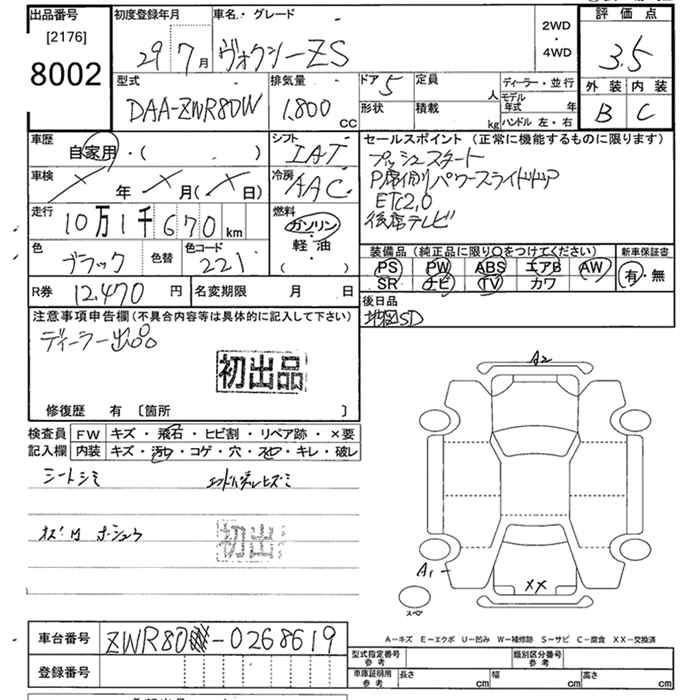 出品番号
[2176]
8002
初度登録年月
29 7月
車名・グレード
ヴォクシーZS
2WD
・
4WD
評価点
3.5
外装 内装
B C
型式
DAA-ZWR80W
排気量
1,800 CC
ドア 5
定員 人
形状
積載 kg
ディーラー・並行
モデル年式 年
ハンドル 左・右
車歴
自家用・( )
シフト
IAT
車検
年 月( 日)
冷房
AAC
走行
10万1千670 km
燃料
ガソリン
・
軽油
( )
色
ブラック
色替
色コード
221
R券 12,470 円
名変期限 月 日
セールスポイント (正常に機能するものに限ります)
プッシュスタート
P席側パワースライドドア
ETC2.0
後席テレビ
装備品 (純正品に限り〇をつけてください)
PS PW ABS エアB AW
SR ナビ TV カワ
新車保証書
有・無
後日品
地図SD
注意事項申告欄 (不具合内容等は具体的に記入して下さい)
ディーラー出品
初出品
修復歴 有 [箇所 ]
検査員記入欄
FW キズ・飛石・ヒビ割・リペア跡・×要
内装 キズ・汚れ・コゲ・穴・スレ・キレ・破レ
シートシミ
初出
A2
A1
XX
スペア
A－キズ E－エクボ U－凹み W－補修跡 S－サビ C－腐食 XX－交換済
車台番号 ZWR80-0268619
登録番号
型式指定番号 参考
類別区分番号 参考
車庫証明用 参考
長さ cm
幅 cm
高さ cm